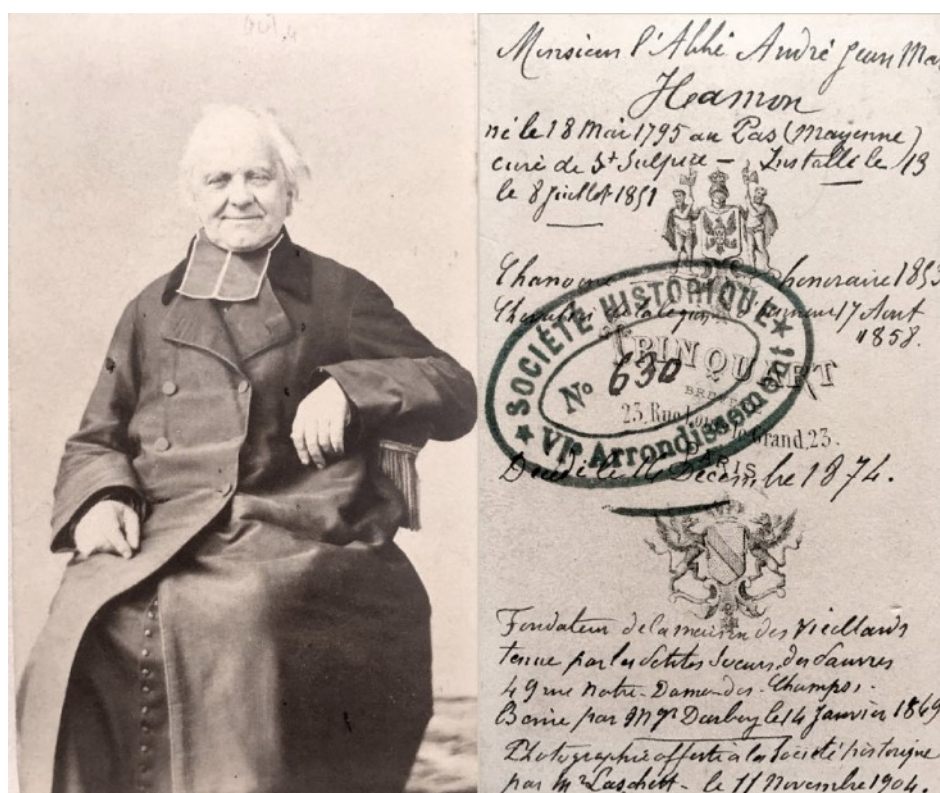 Monsieur l'Abbé André Jean Mar
Hamon
né le 18 Mai 1795 au Pas (Mayenne)
curé de St Sulpice - Installé le 13
le 8 juillet 1851
Chanoine honoraire 1853
Chevalier de la Légion d'honneur 17 Aout
1858.
SOCIÉTÉ HISTORIQUE
No 630
PINQUART
BREVETÉ
23, Rue Louis le Grand, 23.
VIe Arrondissement
PARIS
Décédé le Décembre 1874.
Fondateur de la maison des Vieillards
tenue par les Petites Soeurs des Pauvres
49 rue Notre-Dame-des-Champs.
Bénie par Mgr Darboy le 14 Janvier 1869
Photographie offerte à la Société historique
par Mr - le 11 Novembre 1904.